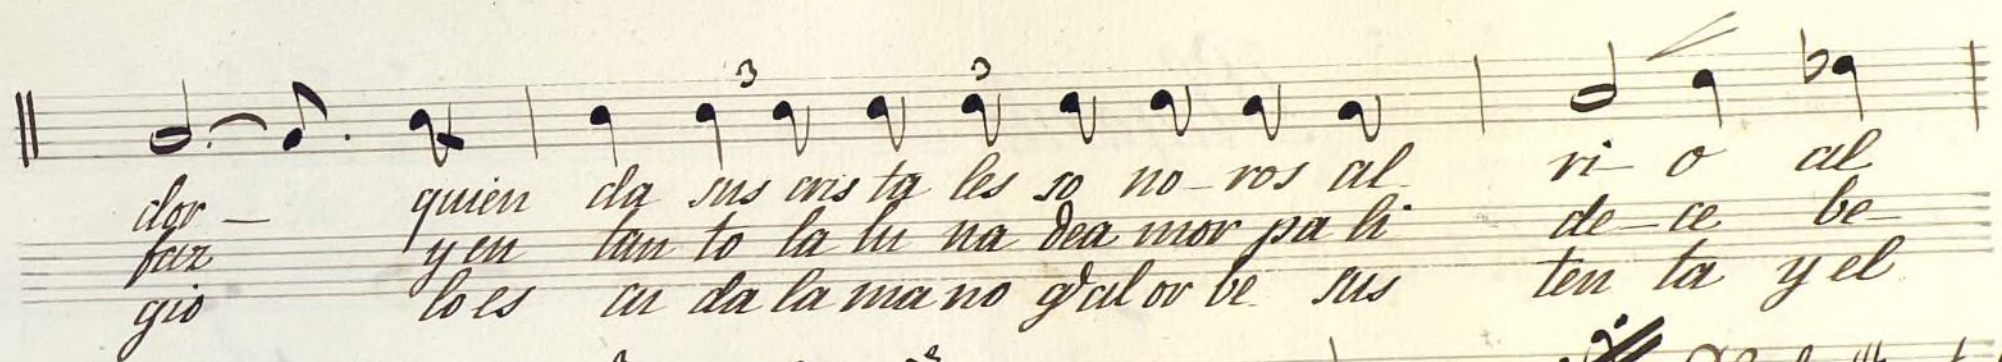 3 3
dor - quien da sus cris ta les so no - ros al ri - o al
faz y en tan to la lu na dea mor pa li de - ce be -
gio lo es cu da la ma no q͛ al or be sus ten ta y el